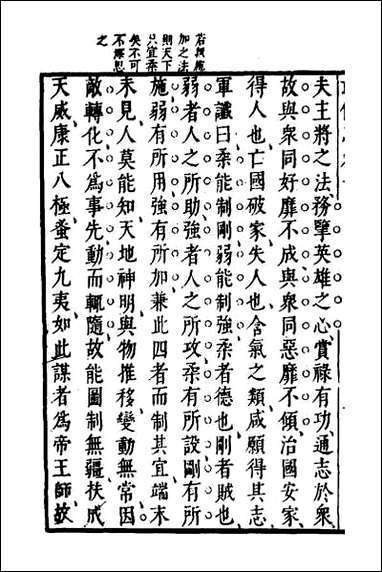 若施
加之法
則天下
只宜柔
矣不可
不繹思
之
夫主將之法務擥英雄之心賞祿有功通志於衆
故與衆同好靡不成與衆同惡靡不傾治國安家
得人也亡國破家失人也含氣之類咸願得其志
軍讖曰柔能制剛弱能制強柔者德也剛者賊也
弱者人之所助強者人之所攻柔有所設剛有所
施弱有所用強有所加兼此四者而制其宜端末
未見人莫能知天地神明與物推移變動無常因
敵轉化不爲事先動而輒隨故能圖制無疆扶成
天威康正八極蜜定九夷如此謀者爲帝王師故